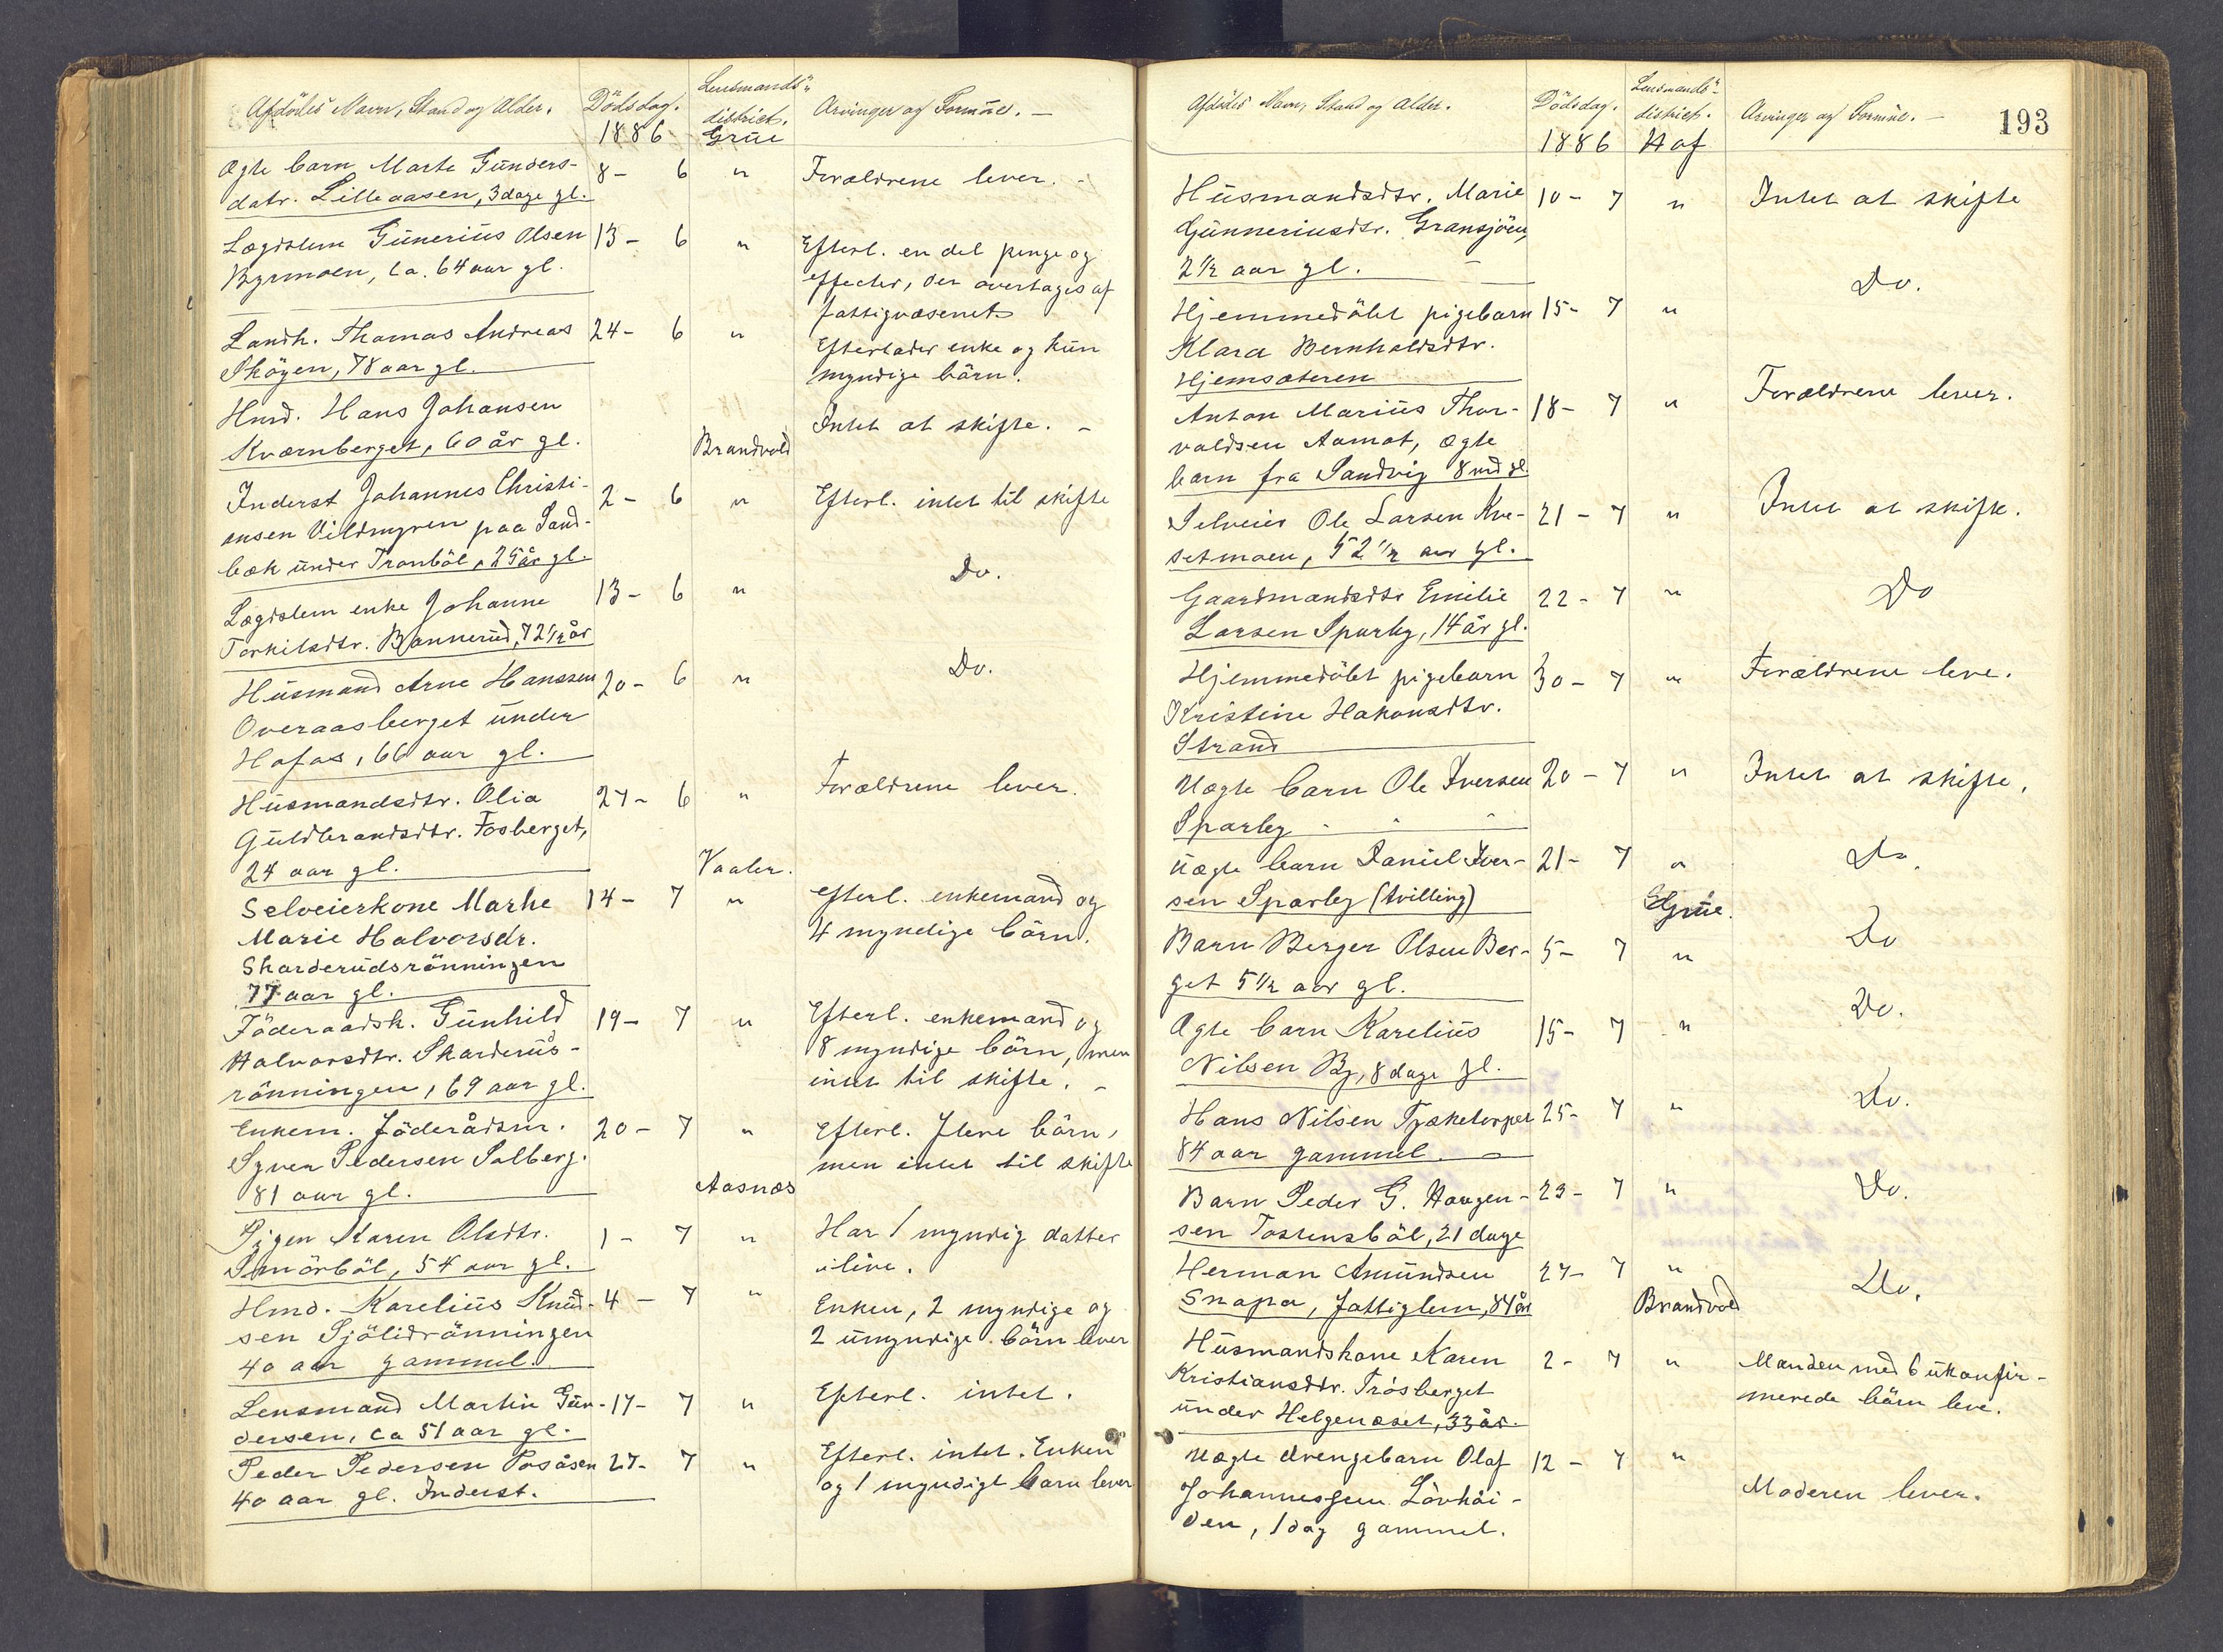 Afdödes Navn, Stand og Alder. Dödsdag. Lensmands-
district. Arvinger og Formue. —
1886 Grue
Ægte barn Marte Gunders- 8 - 6 " Forældrene lever. -
datr. Lilleaasen, 3 dage gl.
Lægdslem Gunerius Olsen 13 - 6 " Efterl. en del penge og
Byrmoen, ca. 64 aar gl. effecter, der overtages af
fattigvæsenet
Landh. Thomas Andreas 24 - 6 " Efterlader enke og kun
Skögen, 78 aar gl. myndige börn.
Hmd. Hans Johansen Intet at skifte. -
Kværnberget, 60 år gl. Brandvold
Inderst Johannes Christi- 2 - 6 " Efterl. intet til skifte
ansen Vildmyren paa Sand-
bæk under Tranböl, 25 år gl.
Lægdslem enke Johanne 13 - 6 " Do.
Torkilsdtr. Bannerud, 72 1/2 år
Husmand Arne Hanssen 20 - 6 " Do.
Overaasberget under
Hofos, 66 aar gl.
Husmandsdtr. Olia 27 - 6 " Forældrene lever.
Guldbrandsdtr. Fosberget,
24 aar gl. Vaaler.
Selveierkone Marhe 14 - 7 " Efterl. enkemand og
Marie Halvorsdr. 4 myndige börn.
Skarderudsrönningen
77 aar gl.
Föderaadsk. Gunhild 19 - 7 " Efterl. enkemand og
Halvorsdtr. Skarderus- 8 myndige börn, men
rönningen, 69 aar gl. intet til skifte. -
Enkem. föderådsm. 20 - 7 " Efterl. flere börn,
Syver Pedersen Solberg. men intet til skifte
81 aar gl. Aasnæs
Pigen Karen Olsdtr. 1 - 7 " Har 1 myndig datter
Smörböl, 54 aar gl. ilive.
Hmd. Karelius Knud- 4 - 7 " Enken, 2 myndige og
sen Sjölidrönningen 2 umyndige börn lever
40 aar gammel.
Lensmand Martin Gun- 17 - 7 " Efterl. intet.
dersen, ca 51 aar gl.
Peder Pedersen Posåsen 27 - 7 " Efterl. intet. Enken
40 aar gl. Inderst. og 1 myndigt barn lever
Afdödes Navn, Stand og Alder. Dödsdag. Lensmands-
district. Arvinger og Formue. — 193
1886 Hof
Husmandsdtr. Marie 10 - 7 " Intet at skifte
Gunneriusdtr. Gransjöen,
2 1/2 aar gl.
Hjemmedöbt pigebarn 15 - 7 " Do.
Klara Bernholdsdtr.
Hjemsæteren
Anton Marius Thor- 18 - 7 " Forældrene lever.
valdsen Aamot, ægte
barn fra Sandvig 8 md gl.
Selveier Ole Larsen Kve- 21 - 7 " Intet at skifte.
setmoen, 52 1/2 aar gl.
Gaardmandsdtr Emilie 22 - 7 " Do
Larsen Sparby, 14 år gl.
Hjemmedöbt pigebarn 30 - 7 " Forældrene leve.
Kristine Hakonsdtr.
Strand
Uægte barn Ole Iversen 20 - 7 " Intet at skifte.
Sparby
Uægte barn Daniel Iver- 21 - 7 " Do.
sen Sparby (tvilling) Grue.
Barn Berger Olsen Ber- 5 - 7 " Do
get 5 1/2 aar gl.
Ægte barn Karelius 15 - 7 " Do.
Nilsen By, 8 dage gl.
Hans Nilsen Tysketorpet 25 - 7 " Do.
84 aar gammel.
Barn Peder G. Haagen- 23 - 7 " Do.
sen Tostensböl, 21 dage
Herman Amundsen 27 - 7 " Do.
Snapa, fattiglem, 84 år Brandvold
Husmandskone Karen 2 - 7 " Manden med 6 ukonfir-
Kristiansdtr. Trösberget merede börn leve.
under Helgenæset, 33 år.
Uægte drengebarn Olaf 12 - 7 " Moderen lever.
Johannessen Lövhöi-
den, 1 dag gammel.